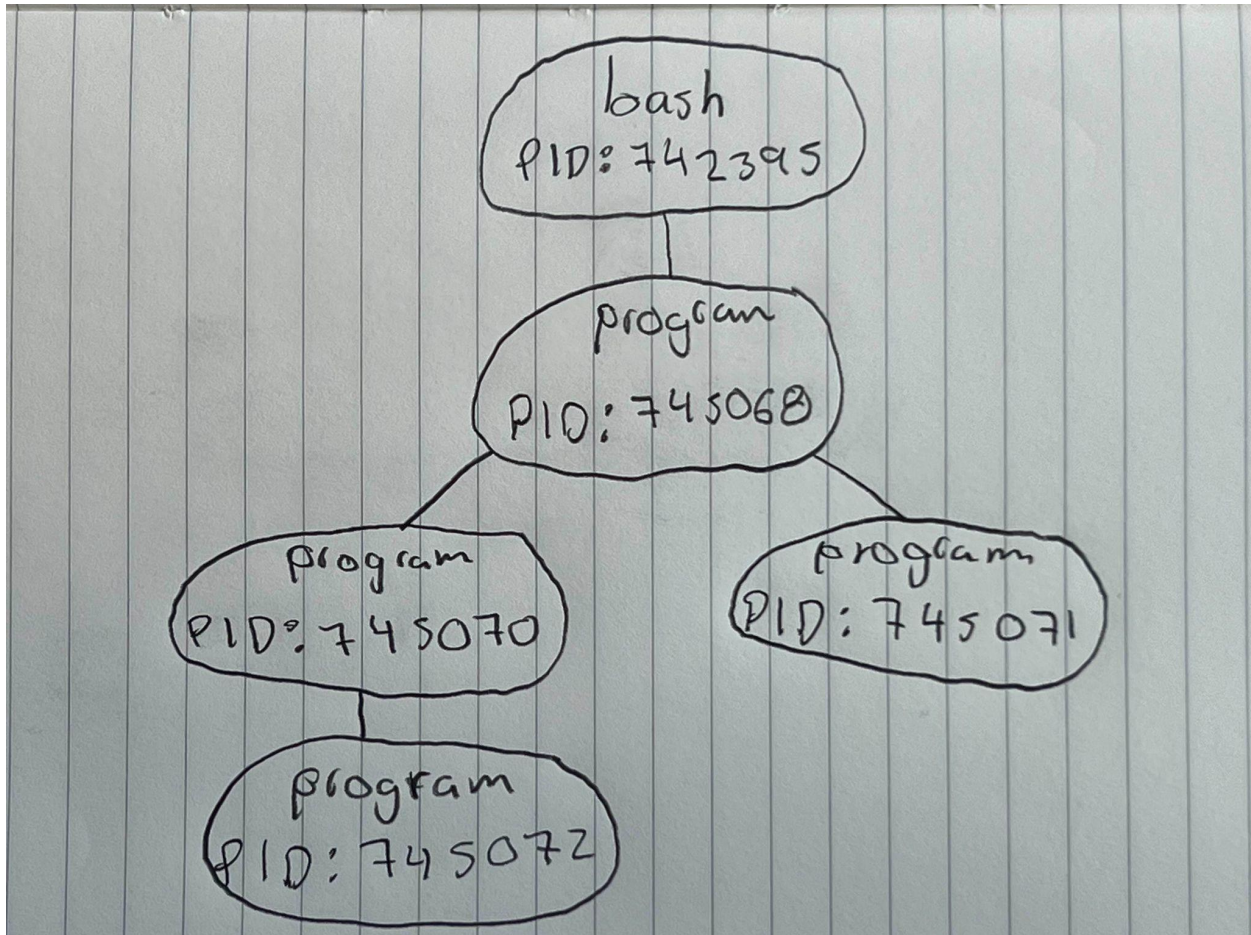 bash
PID: 742395
program
PID: 745068
program
PID: 745070
program
PID: 745071
program
PID: 745072